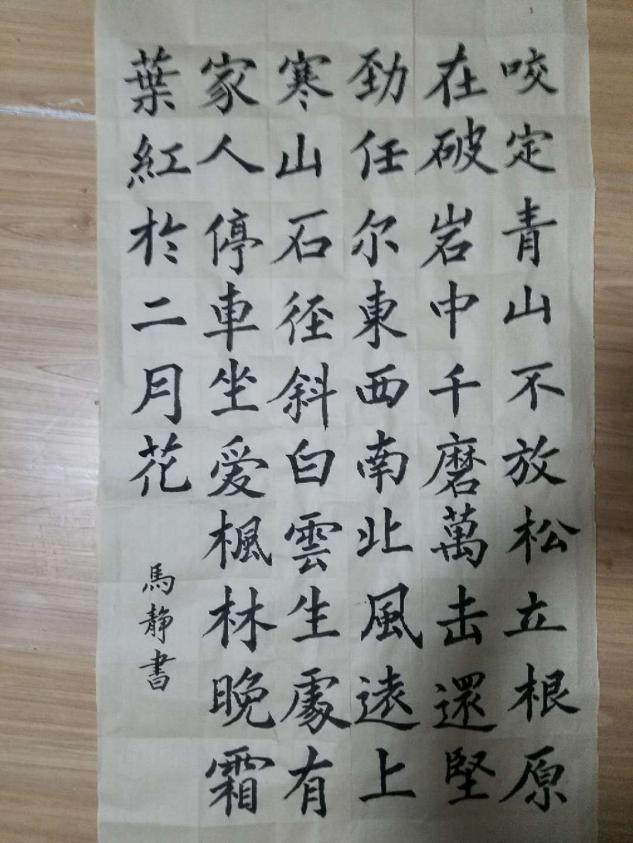 咬定青山不放松立根原
在破岩中千磨萬击還堅
劲任尔東西南北風遠上
寒山石径斜白雲生處有
家人停車坐爱楓林晚霜
葉紅於二月花
馬静書